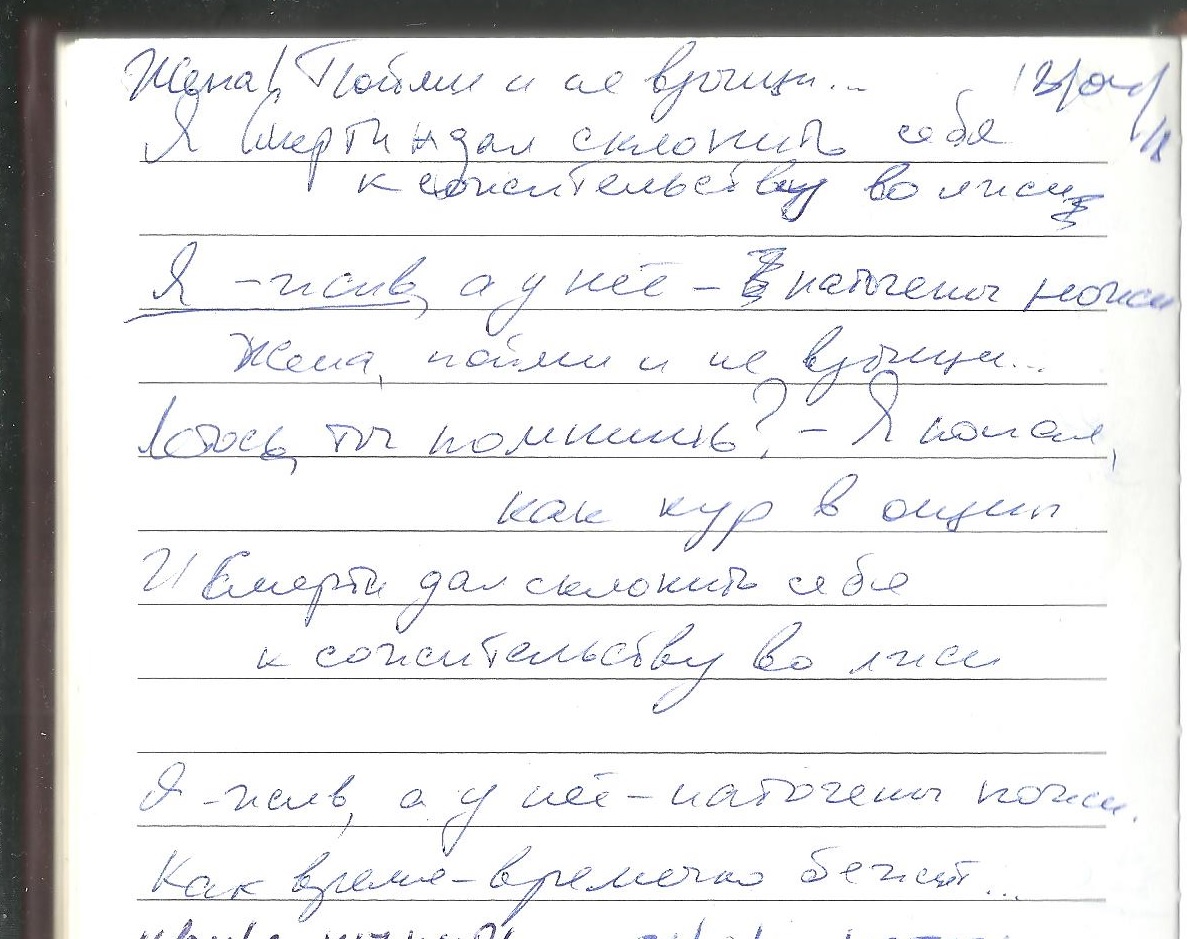 Жена! Пойми и не взыщи...
Я Смерти дал склонить себя
к сожительству во лжи
Я – жив, а у неё – наточены ножи
Жена, пойми и не взыщи...
Лотось, ты помнишь? – Я попал,
как кур в ощип
И Смерти дал склонить себя
к сожительству во лжи
Я – жив, а у неё – наточены ножи.
Как время-времечко бежит...